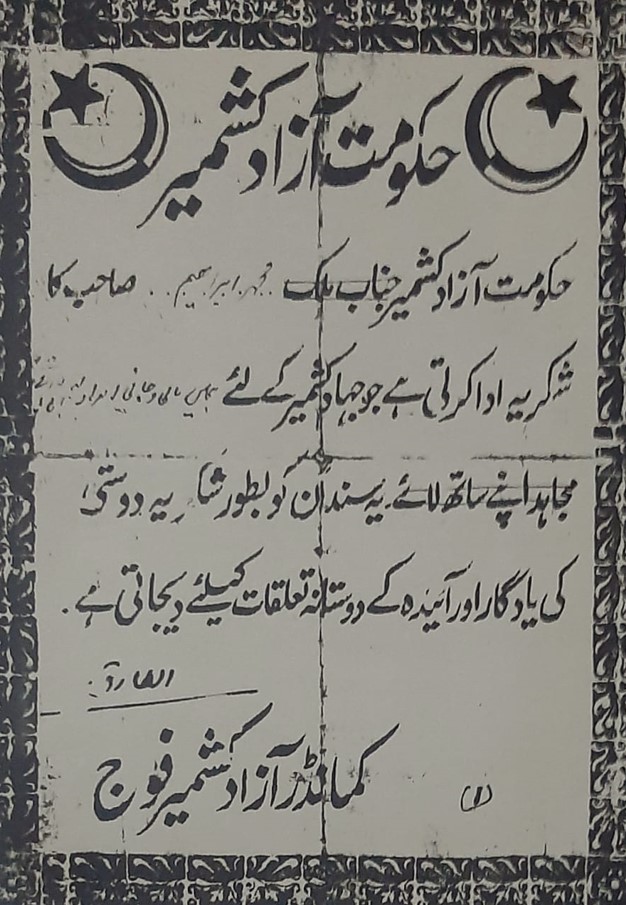 حکومت آزاد کشمیر
حکومت آزاد کشمیر جناب ملک محمد ابراہیم صاحب کا
شکریہ ادا کرتی ہے جو جہاد کشمیر کے لئے
مجاہد اپنے ساتھ لائے۔ یہ سند ان کو بطور شکریہ دوستی
کی یادگار اور آئیندہ کے دوستانہ تعلقات کیلئے دیجاتی ہے۔
کمانڈر آزاد کشمیر فوج